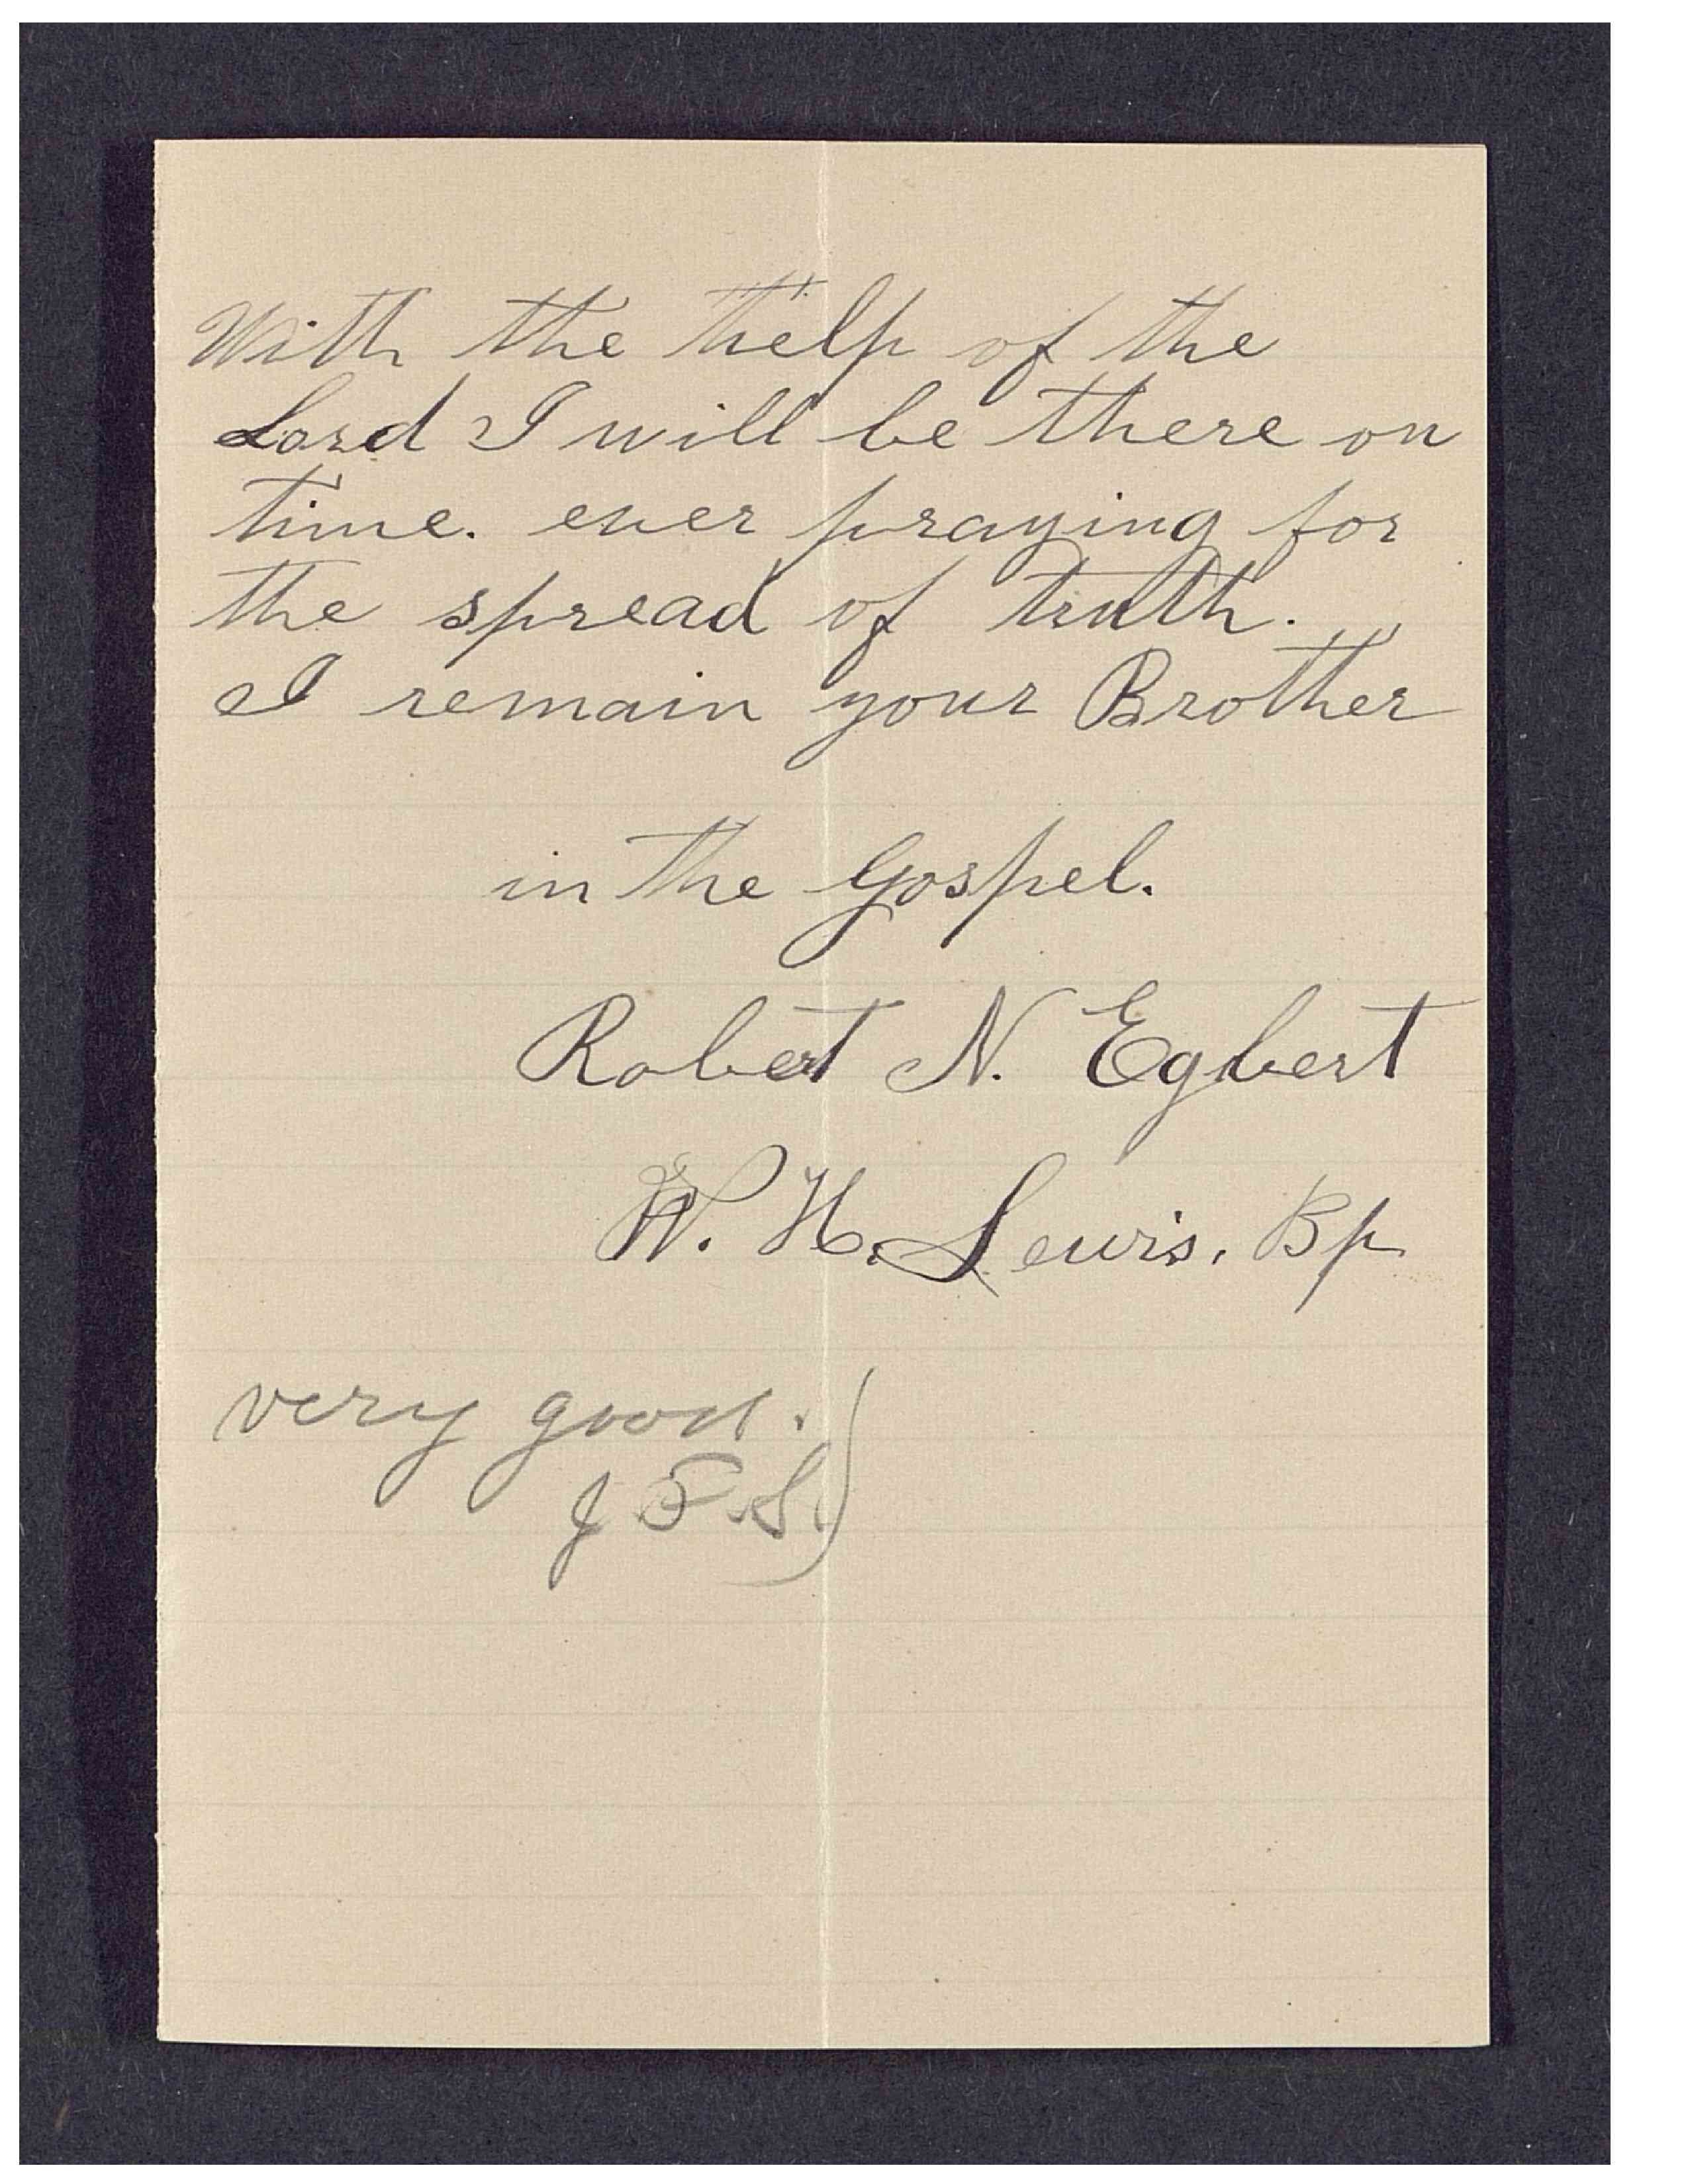 With the help of the
Lord I will be there on
time. ever praying for
the spread of truth.
I remain your Brother
in the Gospel.
Robert N. Egbert
W. H. Lewis, Bp
very good.
J F. S.